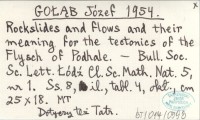 GOŁĄB Józef 1954.
Rockslides and Flows and their
meaning for the tectonics of the
Flysch of Podhale. — Bull. Soc.
Sc. Lett. Łódź Cl. Sc. Math. Nat. 5,
nr 1. Ss. 8, il., tabl. 4, obl., cm
25×18. MT
Dotyczy też Tatr.